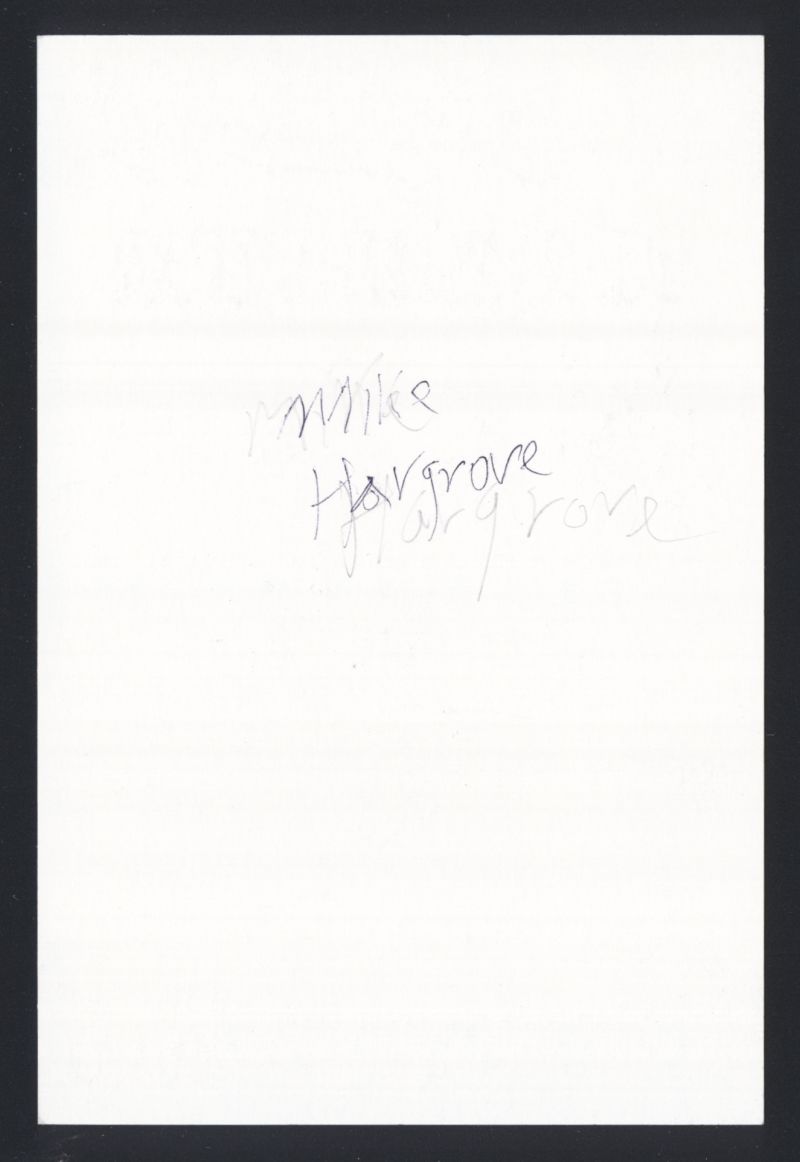 Mike
Hargrove
Mike
Hargrove